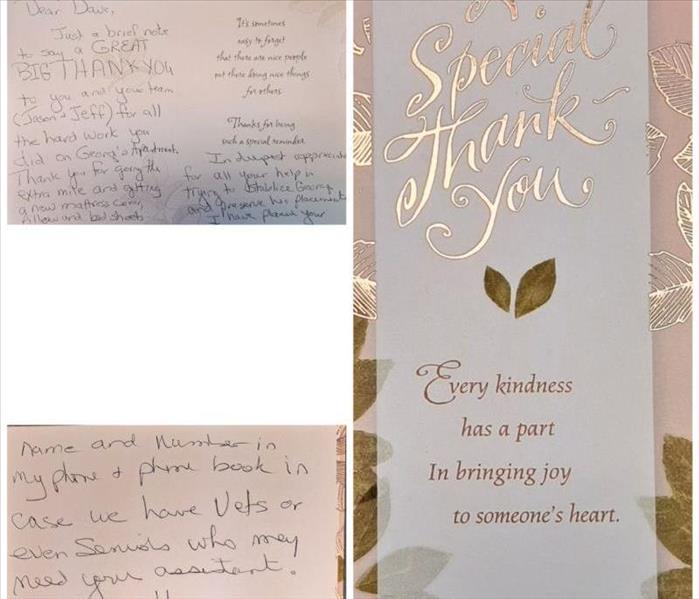 Dear Dave,
Just a brief note
to say a GREAT
BIG THANK YOU
to you and your team
(Jason & Jeff) for all
the hard work you
did on Georg's Apartment.
Thank you for going the
extra mile and getting
a new mattress cover,
pillow and bed sheets
It's sometimes
easy to forget
that there are nice people
out there doing nice things
for others.
Thanks for being
such a special reminder.
In deepest appreciation
for all your help in
trying to stabilize Georg
and preserve his placement
I have placed your
name and Number in
my phone & phone book in
case we have Vets or
even Seniors who may
need your assistant.
A
Special
Thank
You
Every kindness
has a part
In bringing joy
to someone's heart.